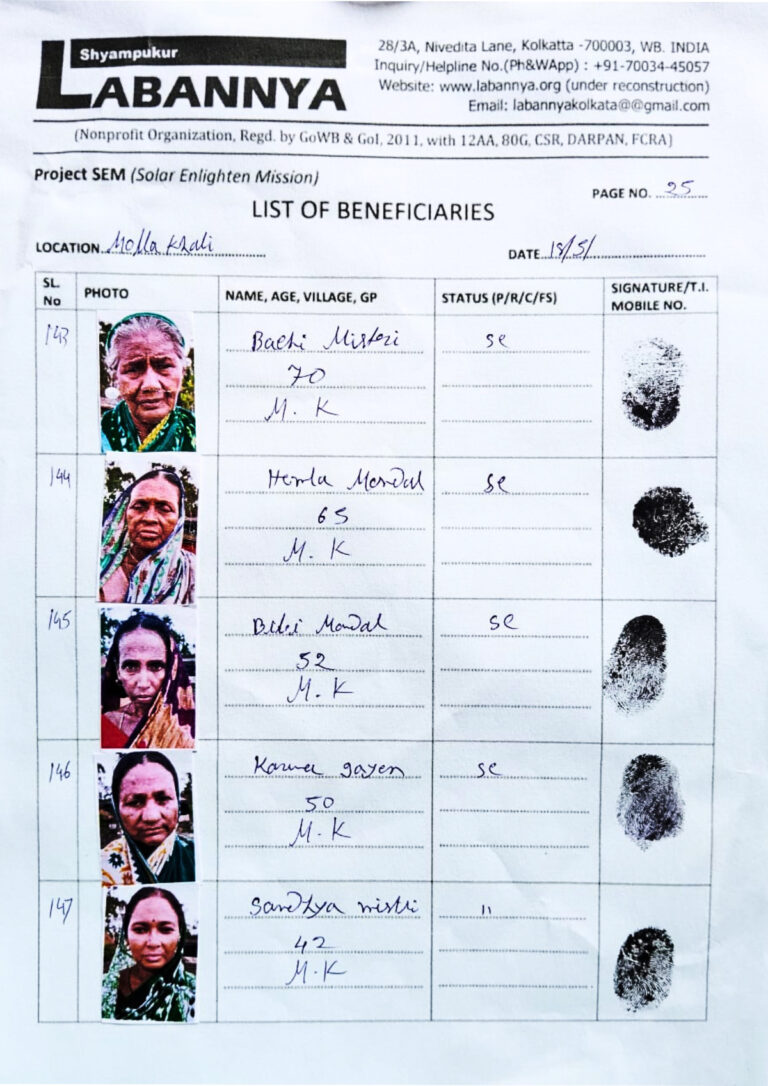 Shyampukur
LABANNYA
28/3A, Nivedita Lane, Kolkatta -700003, WB. INDIA
Inquiry/Helpline No.(Ph&WApp) : +91-70034-45057
Website: www.labannya.org (under reconstruction)
Email: labannyakolkata@@gmail.com
(Nonprofit Organization, Regd. by GoWB & GoI, 2011, with 12AA, 80G, CSR, DARPAN, FCRA)
Project SEM (Solar Enlighten Mission)
PAGE NO. 25
LIST OF BENEFICIARIES
LOCATION Molla Khali
DATE 18/5/
SL. No PHOTO NAME, AGE, VILLAGE, GP STATUS (P/R/C/FS) SIGNATURE/T.I. MOBILE NO.
143 se
70
M. K
144 Mondal se
65
M. K
145 Mondal se
52
M. K
146 gayen se
50
M. K
147 Sandhya mistri "
42
M. K